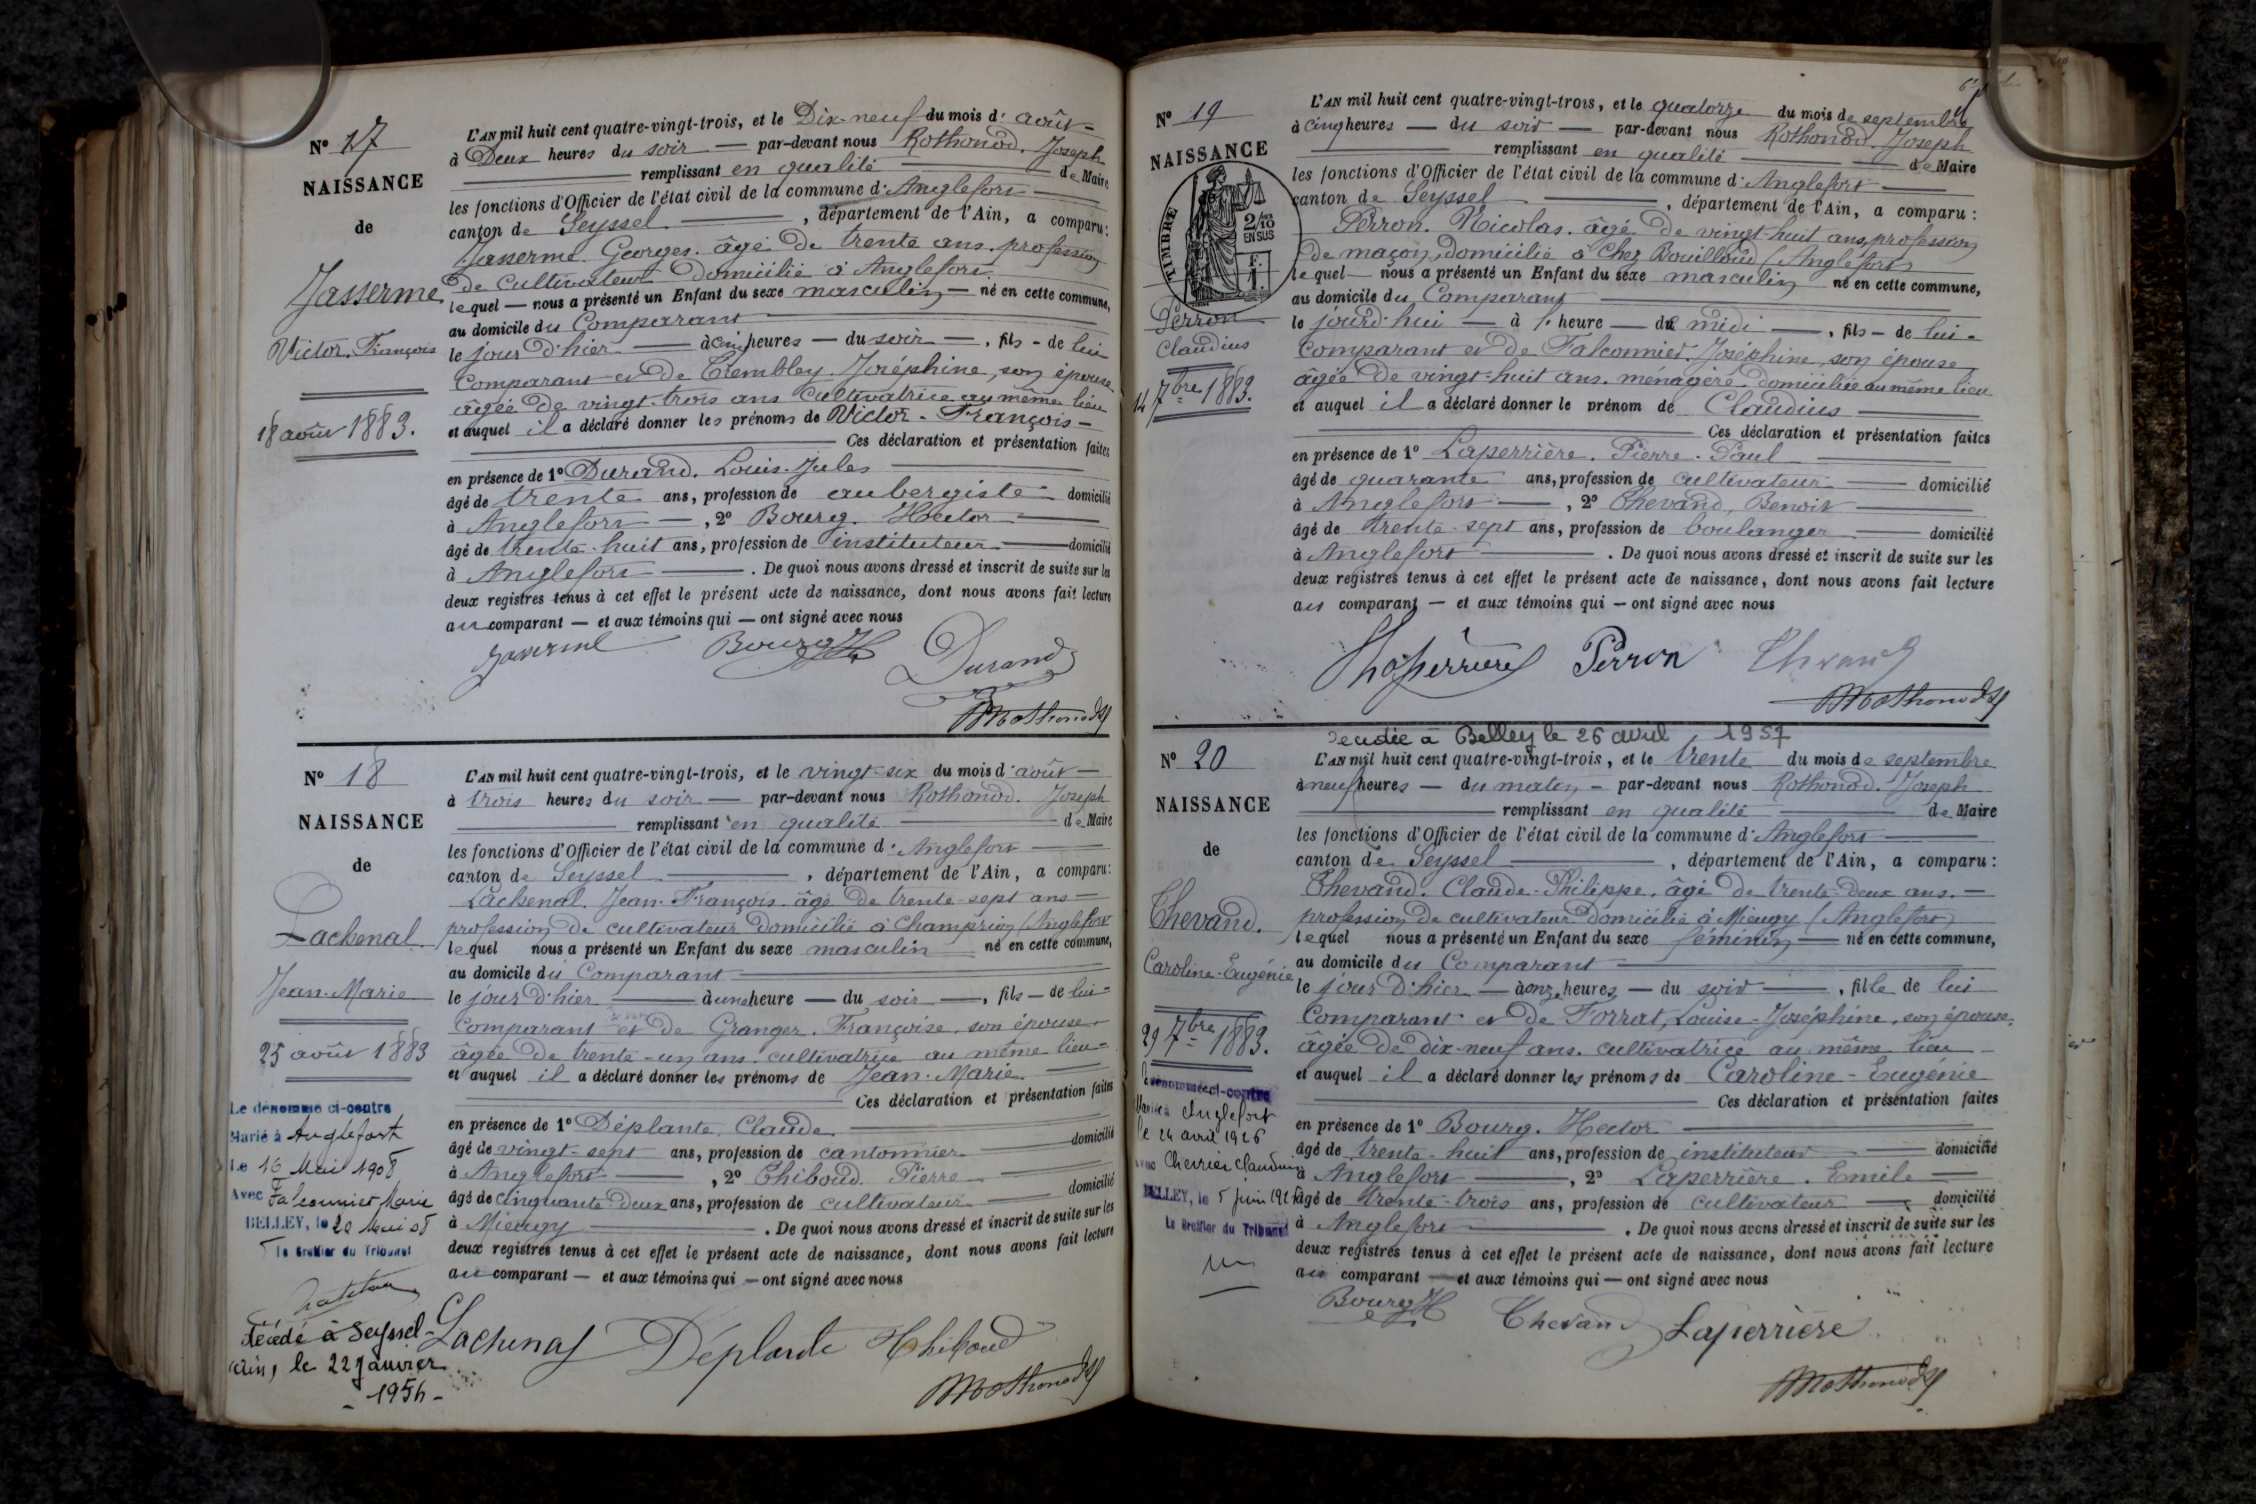 N° 17
NAISSANCE
de
Jasserme
Victor-François
18 août 1883.
L'AN mil huit cent quatre-vingt-trois, et le Dix-neuf du mois d'août
à Deux heures du soir par-devant nous Rothonod. Joseph
remplissant en qualité de Maire
les fonctions d'Officier de l'état civil de la commune d'Anglefort
canton de Seyssel, département de l'Ain, a comparu :
Jasserme. Georges. âgé de trente ans. profession
de cultivateur domicilié à Anglefort.
lequel nous a présenté un Enfant du sexe masculin né en cette commune,
au domicile du Comparant
le jour d'hier à cinq heures du soir, fils de lui
comparant et de Trembley. Joséphine, son épouse
âgée de vingt-trois ans cultivatrice au même lieu
et auquel il a déclaré donner les prénoms de Victor-François
Ces déclaration et présentation faites
en présence de 1° Durand. Louis-Jules
âgé de trente ans, profession de aubergiste domicilié
à Anglefort, 2° Bourg. Hector
âgé de trente-huit ans, profession de instituteur domicilié
à Anglefort. De quoi nous avons dressé et inscrit de suite sur les
deux registres tenus à cet effet le présent acte de naissance, dont nous avons fait lecture
au comparant et aux témoins qui ont signé avec nous
Bourg H Durand
N° 18
NAISSANCE
de
Lachenal
Jean-Marie
25 août 1883
Le dénommé ci-contre
Marié à Anglefort
Le 16 Mai 1908
Avec Falconnier Marie
BELLEY, le 20 Mai 08
Le Greffier du Tribunal
décédé à Seyssel
(Ain) le 22 janvier
1954
L'AN mil huit cent quatre-vingt-trois, et le vingt-six du mois d'août
à trois heures du soir par-devant nous Rothonod. Joseph
remplissant en qualité de Maire
les fonctions d'Officier de l'état civil de la commune d'Anglefort
canton de Seyssel, département de l'Ain, a comparu :
Lachenal. Jean-François. âgé de trente-sept ans
profession de cultivateur domicilié à Champrion (Anglefort
lequel nous a présenté un Enfant du sexe masculin né en cette commune,
au domicile du Comparant
le jour d'hier à une heure du soir, fils de lui
comparant et de Granger. Françoise. son épouse.
âgée de trente-un ans. cultivatrice au même lieu
et auquel il a déclaré donner les prénoms de Jean-Marie
Ces déclaration et présentation faites
en présence de 1° Déplante. Claude
âgé de vingt-sept ans, profession de cantonnier domicilié
à Anglefort, 2° Thiboud. Pierre
âgé de cinquante-deux ans, profession de cultivateur domicilié
à Mieugy. De quoi nous avons dressé et inscrit de suite sur les
deux registres tenus à cet effet le présent acte de naissance, dont nous avons fait lecture
au comparant et aux témoins qui ont signé avec nous
Lachenal Déplante Thiboud
N° 19
NAISSANCE
TIMBRE
2/10 EN SUS
F. 1.
Perron
Claudius
14 7bre 1883.
L'AN mil huit cent quatre-vingt-trois, et le quatorze du mois de septembre
à cinq heures du soir par-devant nous Rothonod. Joseph
remplissant en qualité de Maire
les fonctions d'Officier de l'état civil de la commune d'Anglefort
canton de Seyssel, département de l'Ain, a comparu :
Perron. Nicolas. âgé de vingt-huit ans, profession
de maçon, domicilié à Chez Bouilloud (Anglefort)
lequel nous a présenté un Enfant du sexe masculin né en cette commune,
au domicile du Comparant
le jourd'hui à 1. heure de midi, fils de lui
comparant et de Falconnier. Joséphine, son épouse
âgée de vingt-huit ans. ménagère domiciliée au même lieu
et auquel il a déclaré donner le prénom de Claudius
Ces déclaration et présentation faites
en présence de 1° Laperrière. Pierre-Paul
âgé de quarante ans, profession de cultivateur domicilié
à Anglefort, 2° Chevand, Benoit
âgé de trente-sept ans, profession de boulanger domicilié
à Anglefort. De quoi nous avons dressé et inscrit de suite sur les
deux registres tenus à cet effet le présent acte de naissance, dont nous avons fait lecture
au comparant et aux témoins qui ont signé avec nous
Laperrière Perron Chevand
décédée à Belley le 26 avril 1957
N° 20
NAISSANCE
de
Chevand.
Caroline-Eugénie
29 7bre 1883.
dénommée ci-contre
Mariée à Anglefort
le 24 avril 1926
avec Cherrier Claudius
BELLEY, le 5 juin 1926
Le Greffier du Tribunal
L'AN mil huit cent quatre-vingt-trois, et le trente du mois de septembre
à neuf heures du matin par-devant nous Rothonod. Joseph
remplissant en qualité de Maire
les fonctions d'Officier de l'état civil de la commune d'Anglefort
canton de Seyssel, département de l'Ain, a comparu :
Chevand. Claude-Philippe. âgé de trente-deux ans.
profession de cultivateur domicilié à Mieugy (Anglefort)
lequel nous a présenté un Enfant du sexe féminin né en cette commune,
au domicile du Comparant
le jour d'hier à onze heures du soir, fille de lui
Comparant et de Forrat, Louise-Joséphine, son épouse,
âgée de dix-neuf ans. cultivatrice au même lieu
et auquel il a déclaré donner les prénoms de Caroline-Eugénie
Ces déclaration et présentation faites
en présence de 1° Bourg. Hector
âgé de trente-huit ans, profession de instituteur domicilié
à Anglefort, 2° Laperrière. Emile
âgé de trente-trois ans, profession de cultivateur domicilié
à Anglefort. De quoi nous avons dressé et inscrit de suite sur les
deux registres tenus à cet effet le présent acte de naissance, dont nous avons fait lecture
au comparant et aux témoins qui ont signé avec nous
Bourg H Chevand Laperrière